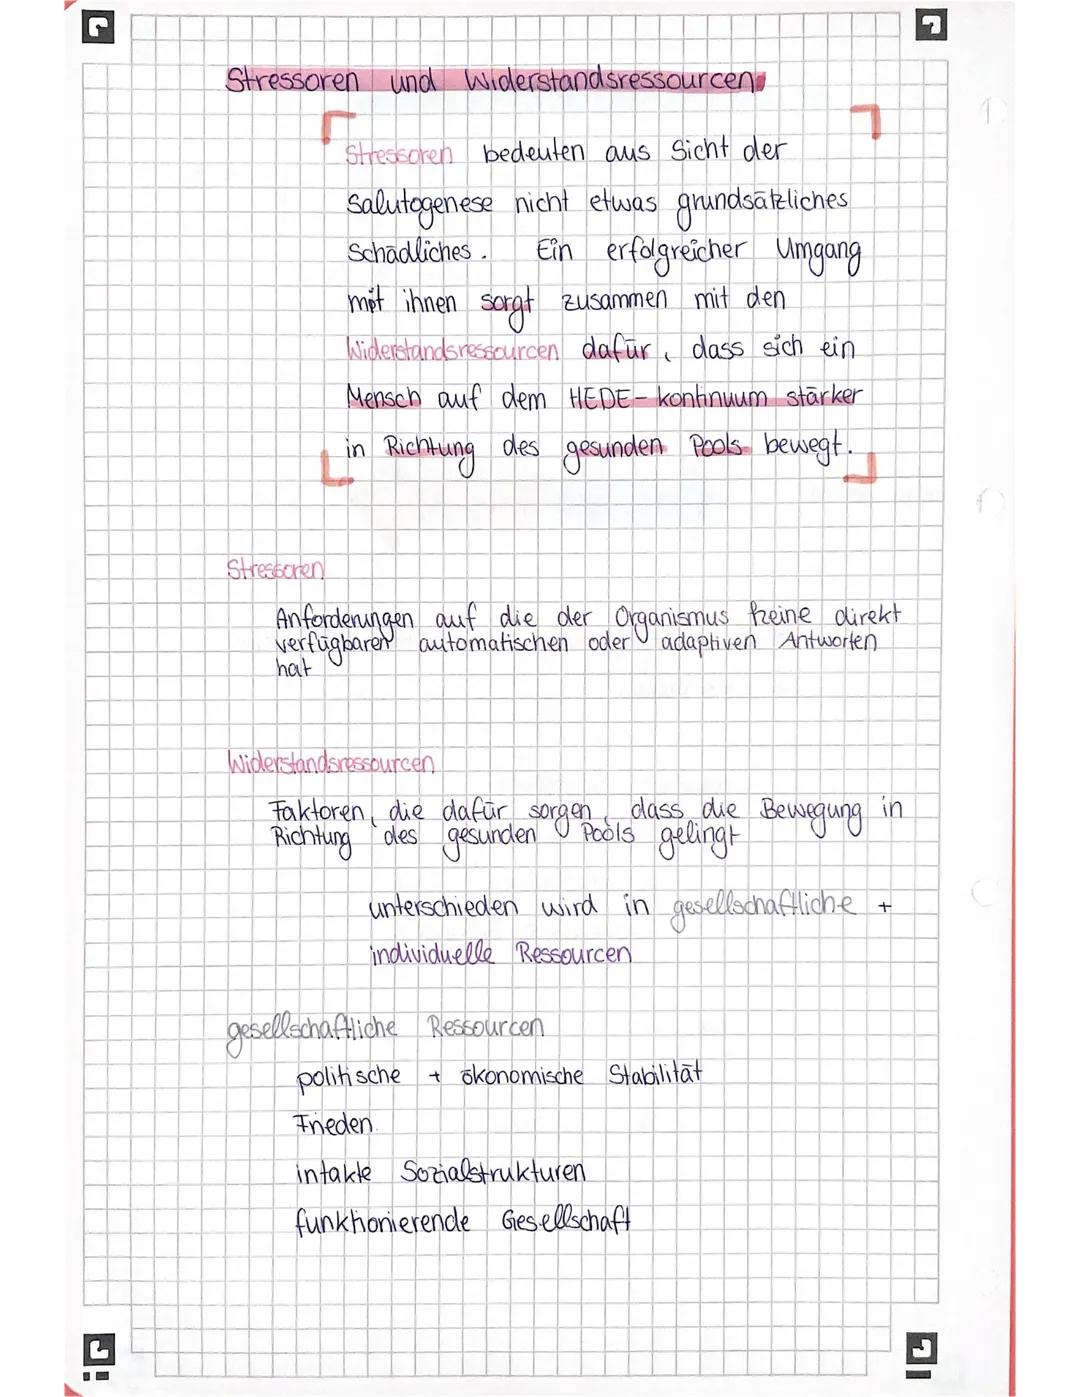 Stressoren und Widerstandsressourcen
Stressoren bedeuten aus Sicht der
Salutogenese nicht etwas grundsätzliches
Schädliches. Ein erfolgreicher Umgang
mit ihnen sorgt zusammen mit den
Widerstandsressourcen dafür, dass sich ein
Mensch auf dem HEDE-kontinuum stärker
in Richtung des gesunden Pools bewegt.
Stressoren
Anforderungen auf die der Organismus keine direkt
verfügbaren automatischen oder adaptiven Antworten
hat
Widerstandsressourcen
Faktoren, die dafür sorgen, dass die Bewegung in
Richtung des gesunden Pools gelingt
unterschieden wird in gesellschaftliche +
individuelle Ressourcen
gesellschaftliche Ressourcen
politische + ökonomische Stabilität
Frieden
intakte Sozialstrukturen
funktionierende Gesellschaft